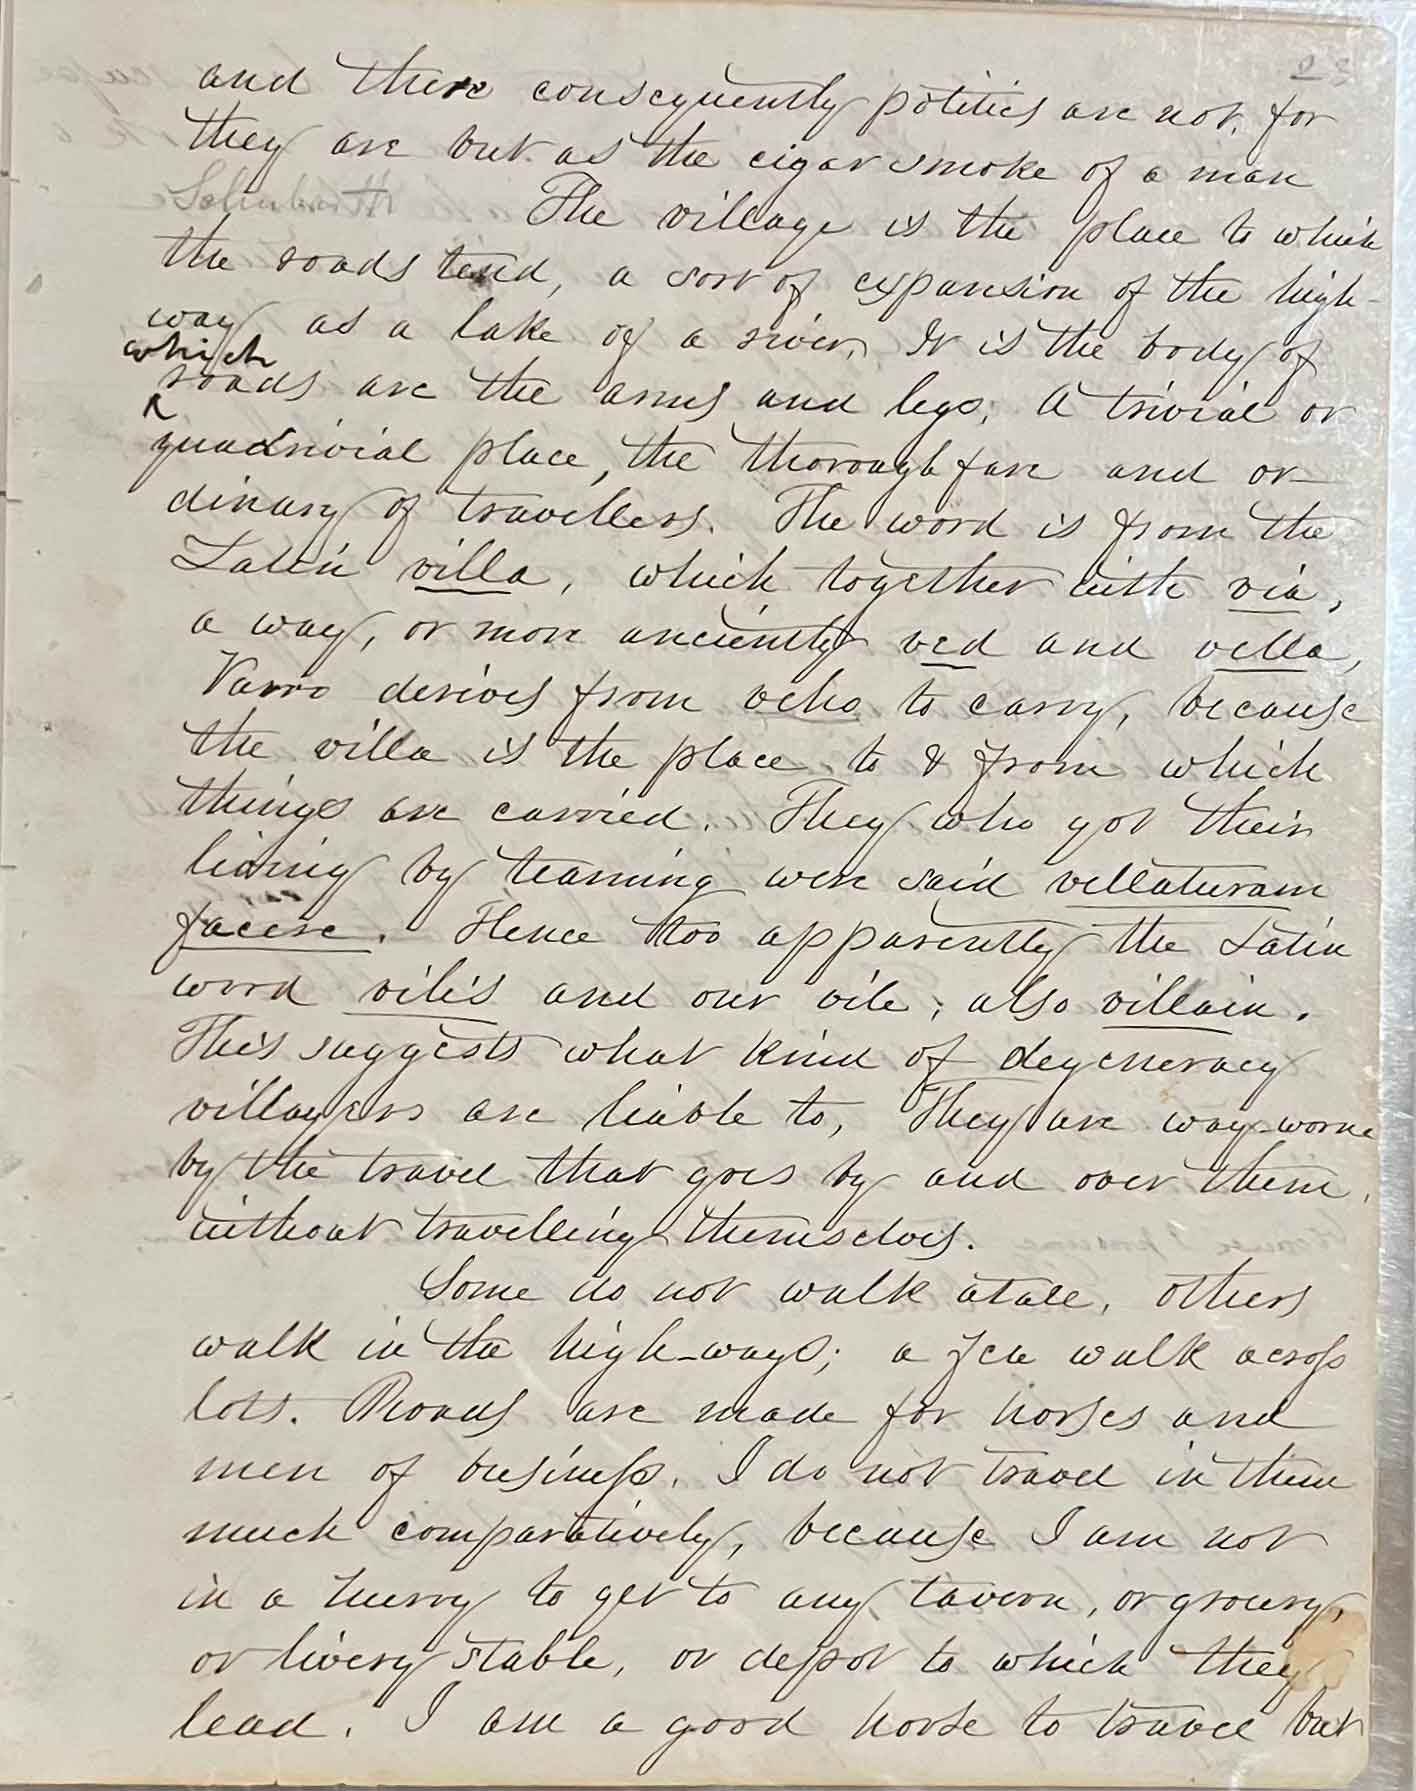 23
and there consequently politics are not, for
they are but as the cigar smoke of a man
The village is the place to which
the roads tend, a sort of expansion of the high-
way as a lake of a river. It is the body of
which
roads are the arms and legs; A trivial or
quadrivial place, the thoroughfare and or-
dinary of travellers. The word is from the
Latin villa, which together with via,
a way, or more anciently ved and vella,
Varro derives from veho to carry, because
the villa is the place to & from which
things are carried. They who got their
living by teaming were said vellaturam
facere. Hence too apparently the Latin
word vilis and our vile; also villain.
This suggests what kind of degeneracy
villagers are liable to, They are way-worn
by the travel that goes by and over them,
without travelling themselves.
Some do not walk atall, others
walk in the high-ways; a few walk across
lots. Roads are made for horses and
men of business. I do not travel in them
much comparatively, because I am not
in a hurry to get to any tavern, or grocery,
or livery stable, or depot to which they
lead. I am a good horse to travel but